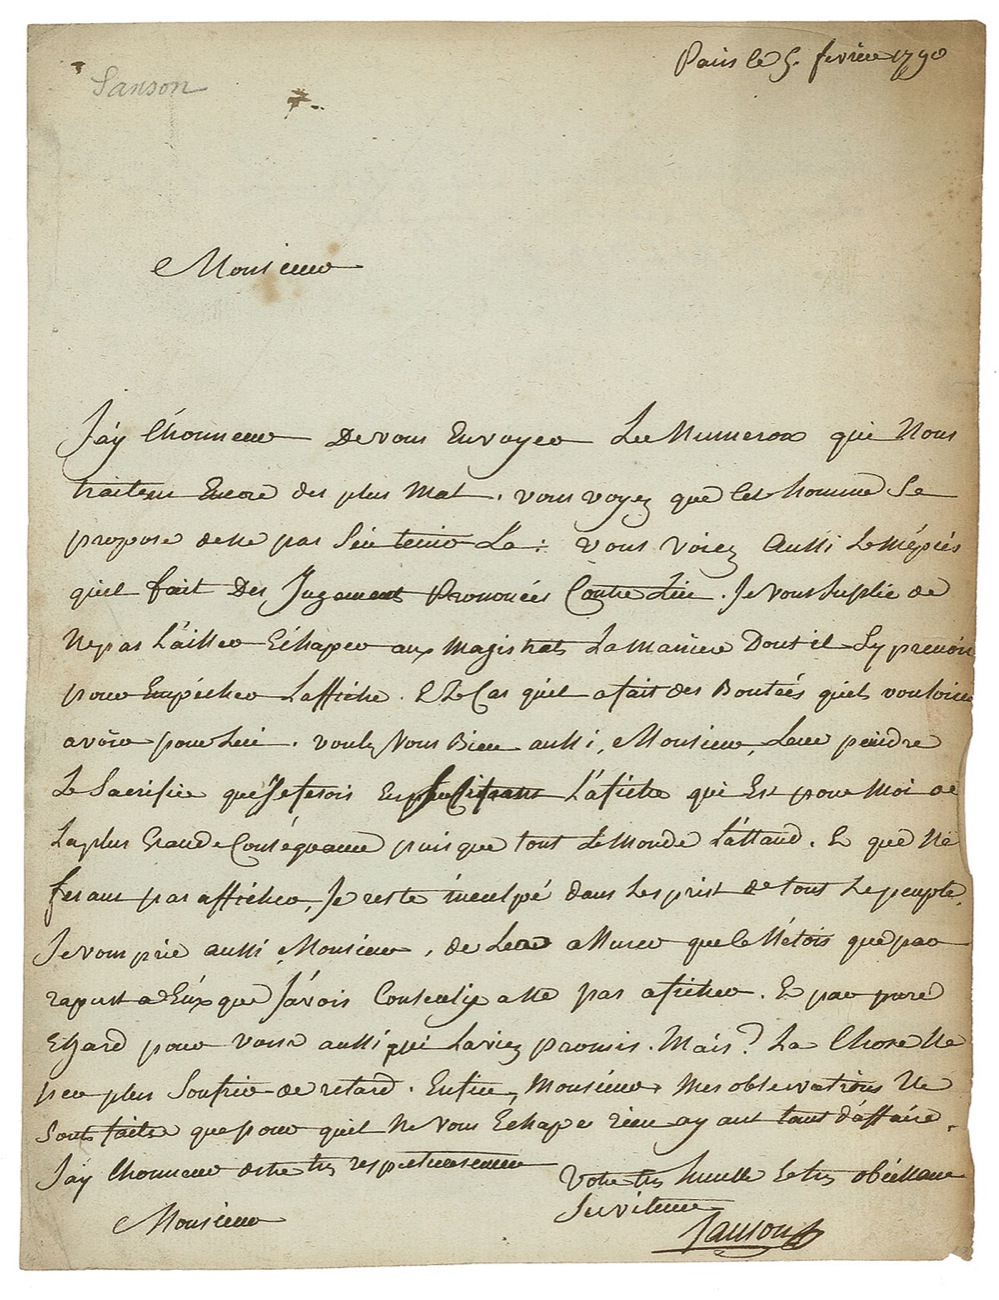 Paris le 5. fevrier 1790
Sanson
Monsieur
J'ay l'honneur De vous Envoyer Les Numeros qui Nous
traitent Encore des plus Mal. vous voyez que Cet homme Se
propose de ne pas S'en tenir La: vous voirez Aussi Le mépris
qu'il fait Des Jugement Prononcés Contre Lui. Je vous Suplie de
Ne pas Laisser Echaper aux Magistrats La maniere Dont il Sy prend
pour Empécher Laffiche. Et Le Cas qu'il a fait des Bontées qu'ils vouloient
avoir pour Lui. voulez Vous Bien aussi, Monsieur, Leur peindre
Le Sacrifice que Je ferois En L'afiche qui Est pour Moi de
La plus Grande Conséquance puis que tout Le Monde L'attand. Et que Ne
fesant pas afficher, Je reste inculpé dans Lesprit de tout Le peuple.
Je vous prie aussi Monsieur, de Leur assurer que Ce N'étois que par
raport a Eux que J'avois Consenti a Ne pas aficher. Et par pure
Egard pour vous aussi qui Laviez promis. Mais? La Chose Ne
peu plus Soufrir de retard. Enfin, Monsieur, Mes observations Ne
Sont faite que pour qu'il Ne vous Echape rien ayant tant d'affaire.
J'ay lhonneur detre tres respectueusement
Votre tres humble Et tres obéissant
Serviteur
Monsieur
Sanson